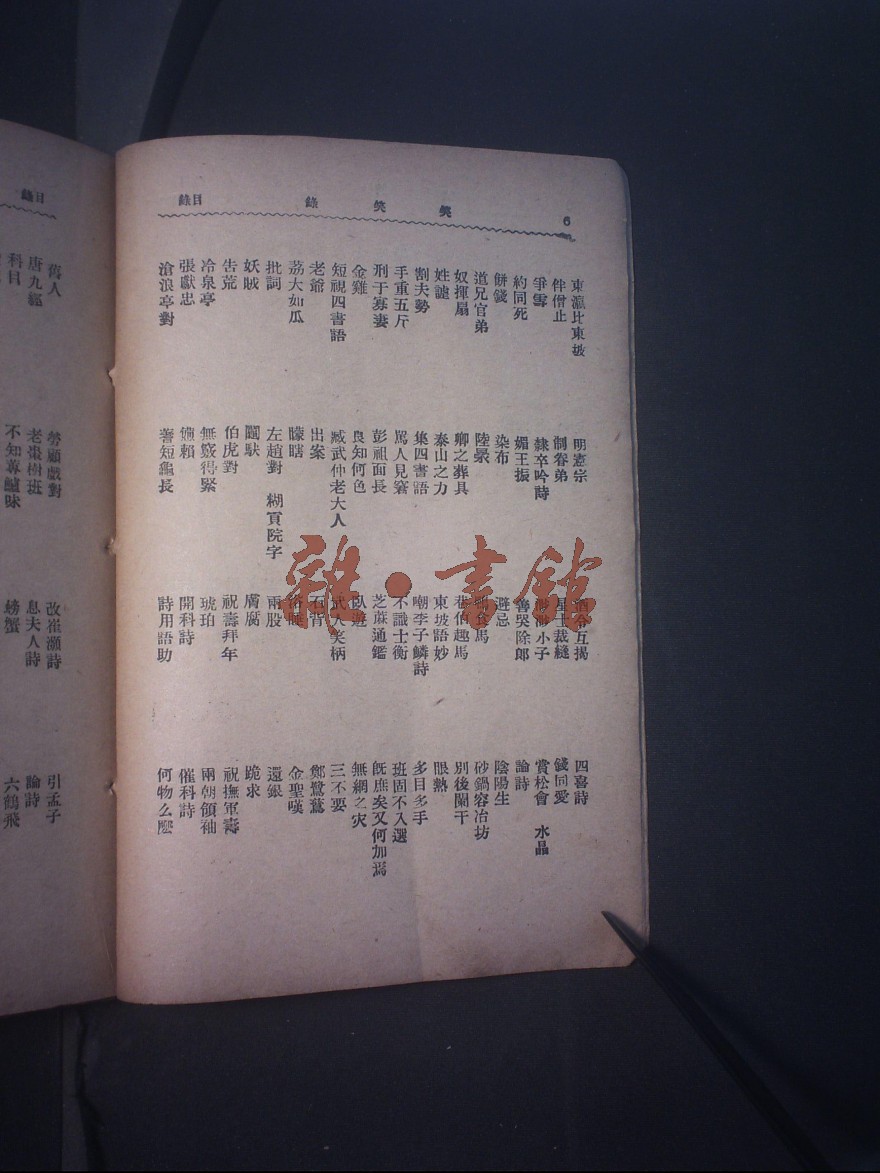 6 笑笑錄 目錄
東瀛比東坡 明憲宗 酒令互揭 四喜詩
伴僧止 制眷弟 星士裁縫 錢同愛
爭雪 隸卒吟詩 小子 賞松會 水晶
約同死 媚王振 善哭除郎 論詩
併錢 染布 避忌 陰陽生
道兄官弟 陸晷 食馬 砂鍋容冶坊
奴揮扇 卿之葬具 巷伯趣馬 別後闌干
姓謔 泰山之力 東坡語妙 眼熱
割夫勢 集四書語 嘲李子鱗詩 多目多手
手重五斤 罵人見窘 不識士衡 班固不入選
刑于寡妻 彭祖面長 芝蔴通鑑 既庶矣又何加焉
金雞 良知何色 臥遊 無網之灾
短視四書語 臧武仲老大人 武人笑柄 三不要
老爺 出案 石背 鄭鷺鷥
荔大如瓜 矇瞎 浴睡 金聖嘆
批詞 左趙對 糊貢院字 兩股 還銀
妖賊 闖獃 膚腐 跪求
告荒 伯虎對 祝壽拜年 祝撫軍壽
冷泉亭 無竅得緊 琥珀 兩朝領袖
張獻忠 嬾賴 開科詩 催科詩
滄浪亭對 蓍短龜長 詩用語助 何物么麼
目錄
舊人 勞顧戲對 改崔灝詩 引孟子
唐九經 老棗樹班 息夫人詩 論詩
科目 不知蓴鱸味 螃蟹 六鶴飛
雜·書館